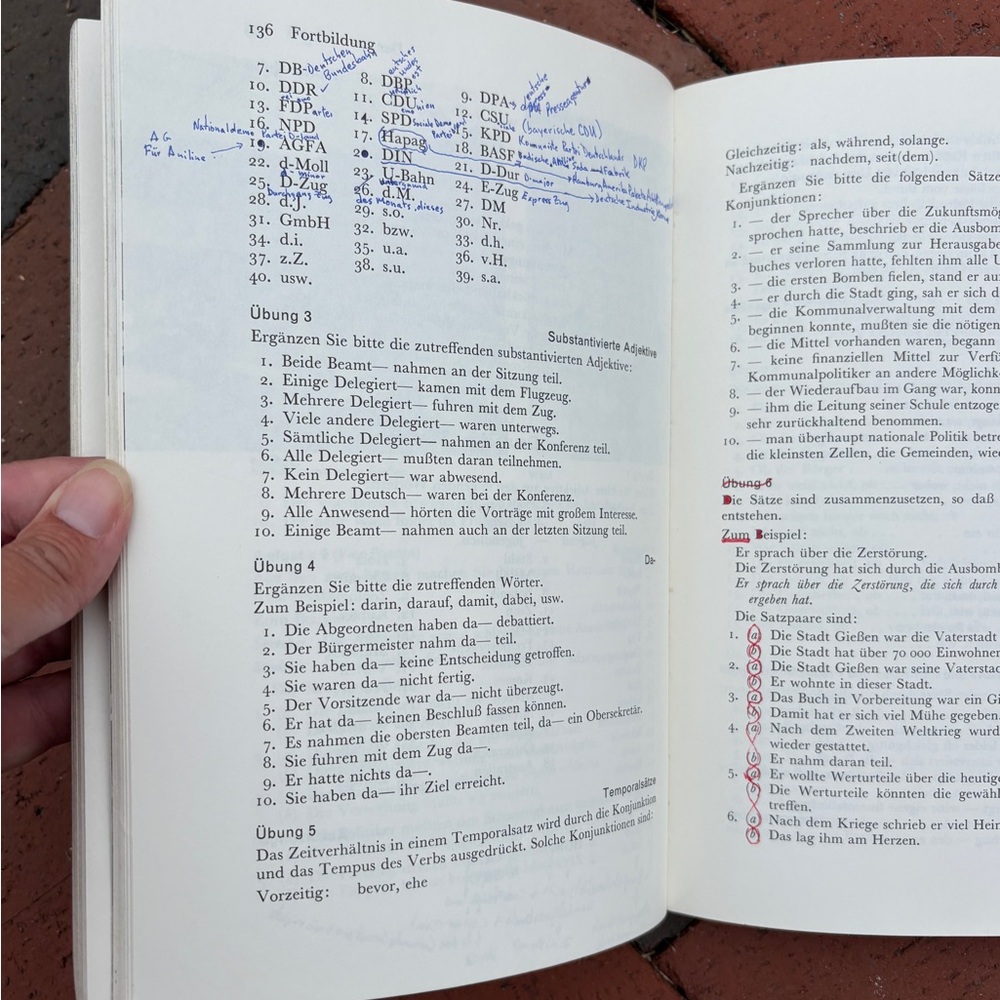 136 Fortbildung
7. DB-Deutschen Bundesbahn 8. DBP 9. DPA
10. DDR 11. CDU 12. CSU (bayerische CDU)
13. FDP 14. SPD 15. KPD Kommunistische Partei Deutschlands DKP
Nationaldemo Partei
16. NPD 17. Hapag 18. BASF
AG Für Aniline
19. AGFA 20. DIN 21. D-Dur D-major
22. d-Moll d minor 23. U-Bahn 24. E-Zug Express Zug
25. D-Zug Durchgang Zug 26. d.M. des Monats, dieses 27. DM
28. d.J. 29. s.o. 30. Nr.
31. GmbH 32. bzw. 33. d.h.
34. d.i. 35. u.a. 36. v.H.
37. z.Z. 38. s.u. 39. s.a.
40. usw.
Übung 3
Substantivierte Adjektive
Ergänzen Sie bitte die zutreffenden substantivierten Adjektive:
1. Beide Beamt— nahmen an der Sitzung teil.
2. Einige Delegiert— kamen mit dem Flugzeug.
3. Mehrere Delegiert— fuhren mit dem Zug.
4. Viele andere Delegiert— waren unterwegs.
5. Sämtliche Delegiert— nahmen an der Konferenz teil.
6. Alle Delegiert— mußten daran teilnehmen.
7. Kein Delegiert— war abwesend.
8. Mehrere Deutsch— waren bei der Konferenz.
9. Alle Anwesend— hörten die Vorträge mit großem Interesse.
10. Einige Beamt— nahmen auch an der letzten Sitzung teil.
Übung 4
Da-
Ergänzen Sie bitte die zutreffenden Wörter.
Zum Beispiel: darin, darauf, damit, dabei, usw.
1. Die Abgeordneten haben da— debattiert.
2. Der Bürgermeister nahm da— teil.
3. Sie haben da— keine Entscheidung getroffen.
4. Sie waren da— nicht fertig.
5. Der Vorsitzende war da— nicht überzeugt.
6. Er hat da— keinen Beschluß fassen können.
7. Es nahmen die obersten Beamten teil, da— ein Obersekretär.
8. Sie fuhren mit dem Zug da—.
9. Er hatte nichts da—.
10. Sie haben da— ihr Ziel erreicht.
Übung 5
Temporalsätze
Das Zeitverhältnis in einem Temporalsatz wird durch die Konjunktion
und das Tempus des Verbs ausgedrückt. Solche Konjunktionen sind:
Vorzeitig: bevor, ehe
Gleichzeitig: als, während, solange.
Nachzeitig: nachdem, seit(dem).
Ergänzen Sie bitte die folgenden Sätze
Konjunktionen:
1. — der Sprecher über die Zukunftsmög
sprochen hatte, beschrieb er die Ausbom
2. — er seine Sammlung zur Herausgabe
buches verloren hatte, fehlten ihm alle U
3. — die ersten Bomben fielen, stand er au
4. — er durch die Stadt ging, sah er sich d
5. — die Kommunalverwaltung mit dem
beginnen konnte, mußten sie die nötigen
6. — die Mittel vorhanden waren, begann
7. — keine finanziellen Mittel zur Verfü
Kommunalpolitiker an andere Möglichk
8. — der Wiederaufbau im Gang war, konn
9. — ihm die Leitung seiner Schule entzoge
sehr zurückhaltend benommen.
10. — man überhaupt nationale Politik betre
die kleinsten Zellen, die Gemeinden, wied
Übung 6
Die Sätze sind zusammenzusetzen, so daß
entstehen.
Zum Beispiel:
Er sprach über die Zerstörung.
Die Zerstörung hat sich durch die Ausbomb
Er sprach über die Zerstörung, die sich durch
ergeben hat.
Die Satzpaare sind:
1. (a) Die Stadt Gießen war die Vaterstadt
(b) Die Stadt hat über 70 000 Einwohner
2. (a) Die Stadt Gießen war seine Vaterstad
(b) Er wohnte in dieser Stadt.
3. (a) Das Buch in Vorbereitung war ein Gi
(b) Damit hat er sich viel Mühe gegeben.
4. (a) Nach dem Zweiten Weltkrieg wurd
wieder gestattet.
(b) Er nahm daran teil.
5. (a) Er wollte Werturteile über die heutige
(b) Die Werturteile könnten die gewähl
treffen.
6. (a) Nach dem Kriege schrieb er viel Hein
(b) Das lag ihm am Herzen.